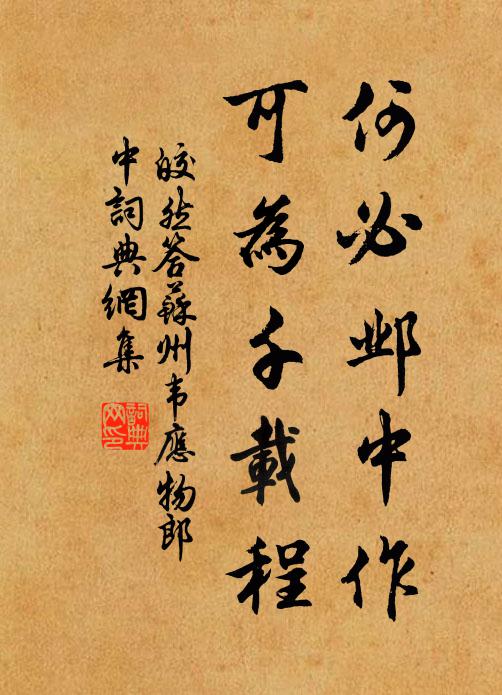 何必邺中作
可為千載程
皎然答蘇州韦應物郎
中詞典網集
詞典
网印